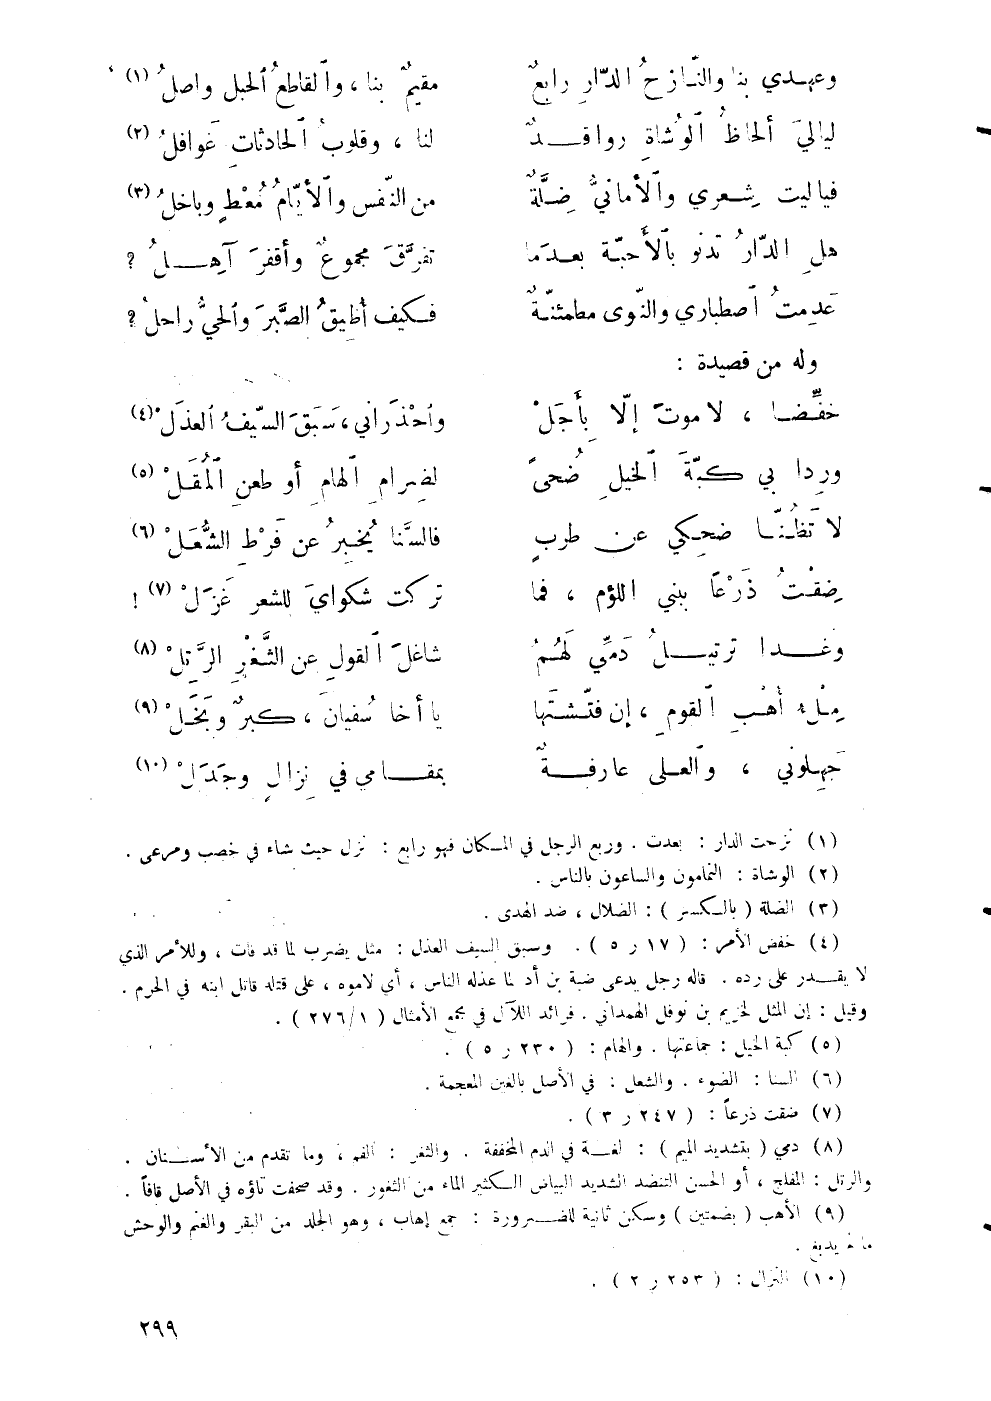 وعهدي بنا والنّازحُ الدّارِ رابعٌ مقيمٌ بنا ، وٱلقاطعُ ٱلحبل واصلُ (١) ،
لياليَ ألحاظُ ٱلوُشاةِ روافـــدٌ لنا ، وقلوبُ ٱلحادثاتِ غَوافلُ (٢)
فياليت شِعري وٱلأمانيُّ ضِلَّةٌ من النّفس وٱلأيّامُ مُعْطٍ وباخلُ (٣)
هلِ الدّارُ تدنو بٱلأَحبّة بعدَما تفرَّقَ مجموعٌ وأقفرَ آهـــلُ ؟
عَدِمتُ ٱصطباري والنّوى مطمئنّةٌ فكيف أُطيقُ الصَّبرَ وٱلحيُّ راحلُ ؟
وله من قصيدة :
خفِّضا ، لا موتَ إلّا بِأَجَلْ وٱحْذَراني ، سَبَقَ السّيفُ العذَلْ (٤)
ورِدا بي كبّةَ ٱلخيلِ ضُحىً لضِرامِ ٱلهامِ أو طعنِ ٱلمُقَلْ (٥)
لا تَظُنّا ضحِكي عن طربٍ فالسَّنا يُخبِرُ عن فَرْطِ الشُّعَلْ (٦)
ضِقْتُ ذَرْعاً ببني اللؤم ، فما تركت شكوايَ للشعر غَزَلْ (٧) !
وغـــدا ترتيـــلُ دَمّي لَهُمُ شاغلَ ٱلقولِ عن الثَّغْرِ الرَّتِلْ (٨)
مِلْءُ أُهْبِ ٱلقومِ ، إن فتّشتَها يا أخا سُفيانَ ، كبرٌ وبَخَلْ (٩)
جَهِلوني ، وٱلعلى عارفـــةٌ بمقـــامي في نِزالٍ وجَدَلْ (١٠)
(١) نزحت الدار : بعدت . وربع الرجل في المكان فهو رابع : نزل حيث شاء في خصب ومرعى .
(٢) الوشاة : النمامون والساعون بالناس .
(٣) الضلة ( بالكسر ) : الضلال ، ضد الهدى .
(٤) خفض الأمر : ( ١٧ ر ٥ ) . وسبق السيف العذل : مثل يضرب لما قد فات ، وللأمر الذي
لا يقـدر على رده . قاله رجل يدعى ضبة بن أد لما عذله الناس ، أي لاموه ، على قتله قاتل ابنه في الحرم .
وقيل : إن المثل لخزيم بن نوفل الهمداني . فرائد اللآل في مجمع الأمثال ( ٢٧٦/١ ) .
(٥) كبة الخيل : جماعتها . والهام : ( ٢٣٠ ر ٥ ) .
(٦) السنا : الضوء . والشعل : في الأصل بالغين المعجمة .
(٧) ضقت ذرعاً : ( ٢٤٧ ر ٣ ) .
(٨) دمي ( بتشديد الميم ) : لغـة في الدم المخففة . والثغر : الفم ، وما تقدم من الأسـنان .
والرتل : المفلج ، أو الحسن التنضد الشديد البياض الكثير الماء من الثغور . وقد صحفت تاؤه في الأصل قافاً .
(٩) الأهب ( بضمتين ) وسكن ثانية للضـرورة : جمع إهاب ، وهو الجلد من البقر والغنم والوحش
ما لم يدبغ .
(١٠) النزال : ( ٢٥٣ ر ٢ ) .
٢٩٩